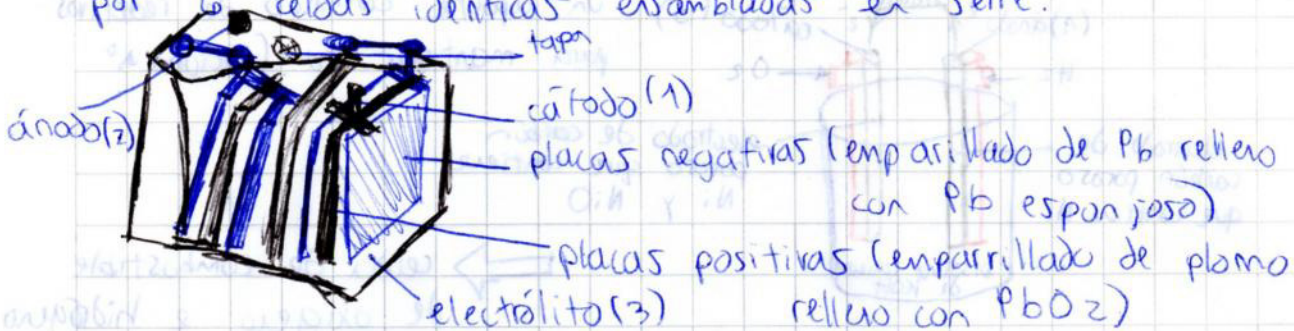 por 6 celdas idénticas ensambladas en serie.
tapa
ánodo(2)
cátodo(1)
placas negativas (emparillado de Pb relleno
con Pb esponjoso)
placas positivas (emparrillado de plomo
relleno con PbO2)
electrólito(3)